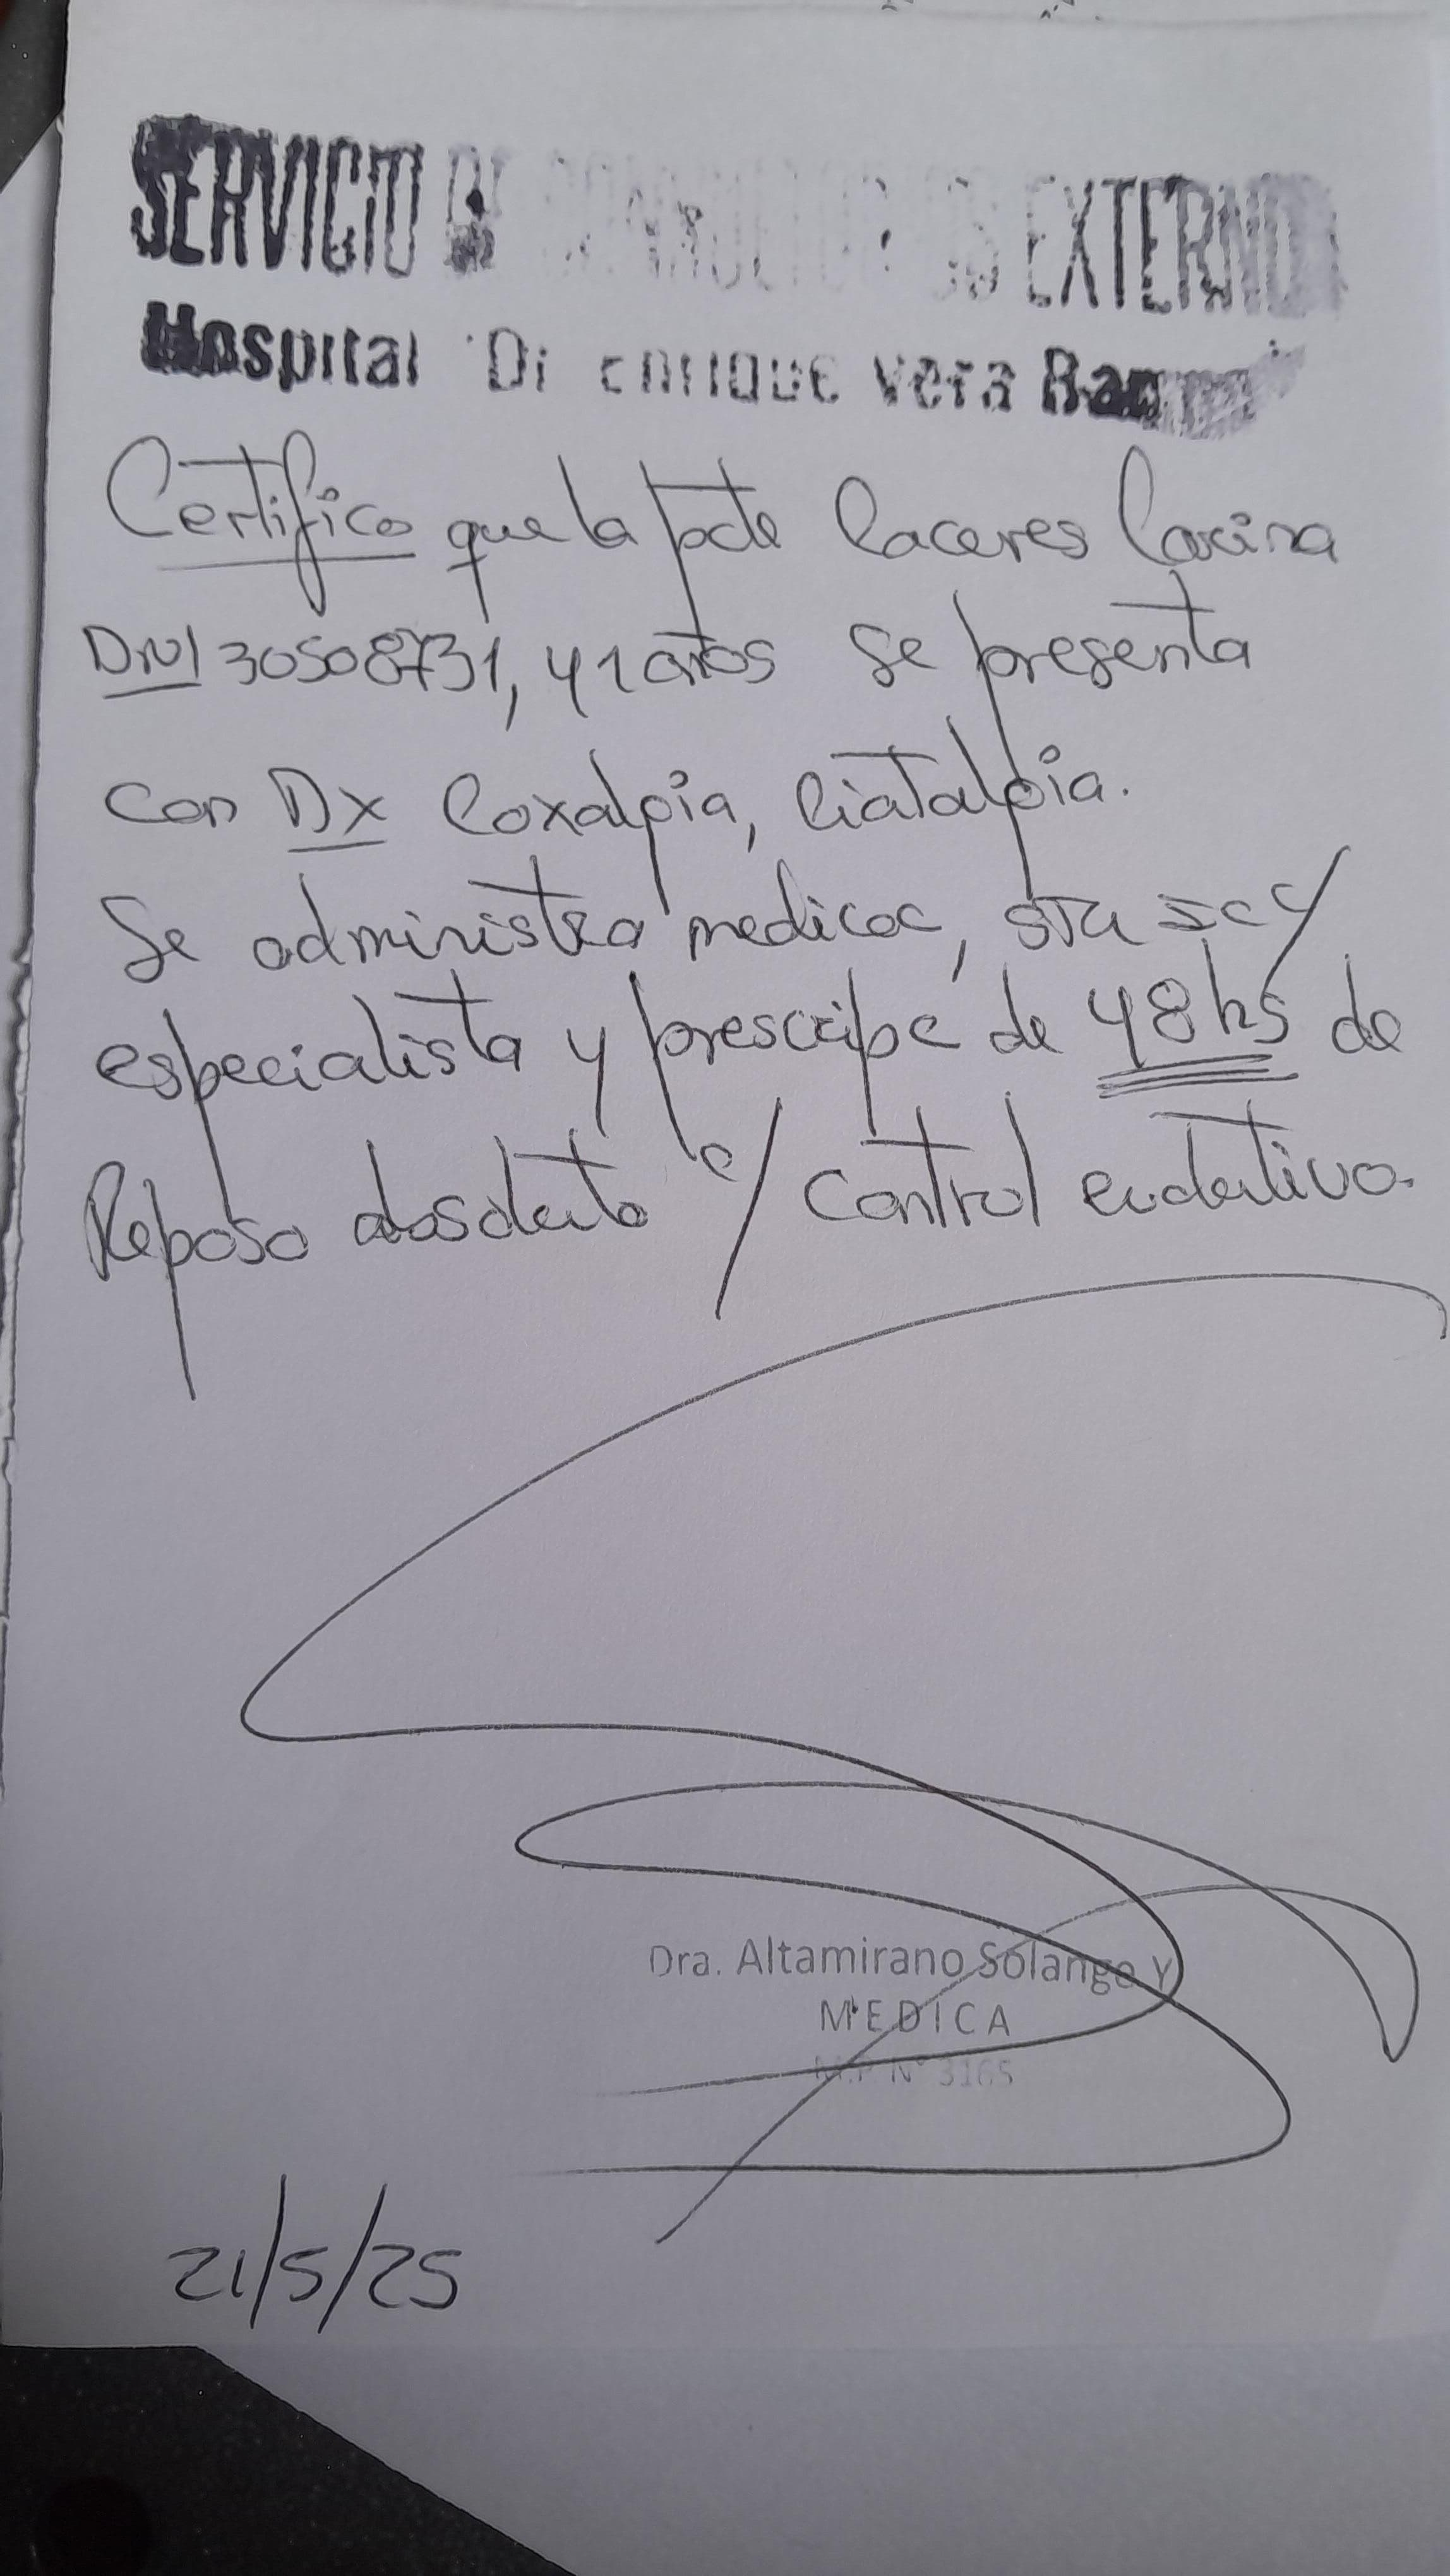 SERVICIO DE CONSULTORIOS EXTERNOS
Hospital Dr Enrique Vera Barros
Certifico que la pcte Caceres Carina
DNI 30508731, 41 años se presenta
con Dx Coxalgia, Ciatalgia.
Se administra medicac,
especialista y prescribe de 48 hs de
Reposo absoluto c/ control evolutivo.
Dra. Altamirano Solange Y
MEDICA
M.P. N° 3165
21/5/25